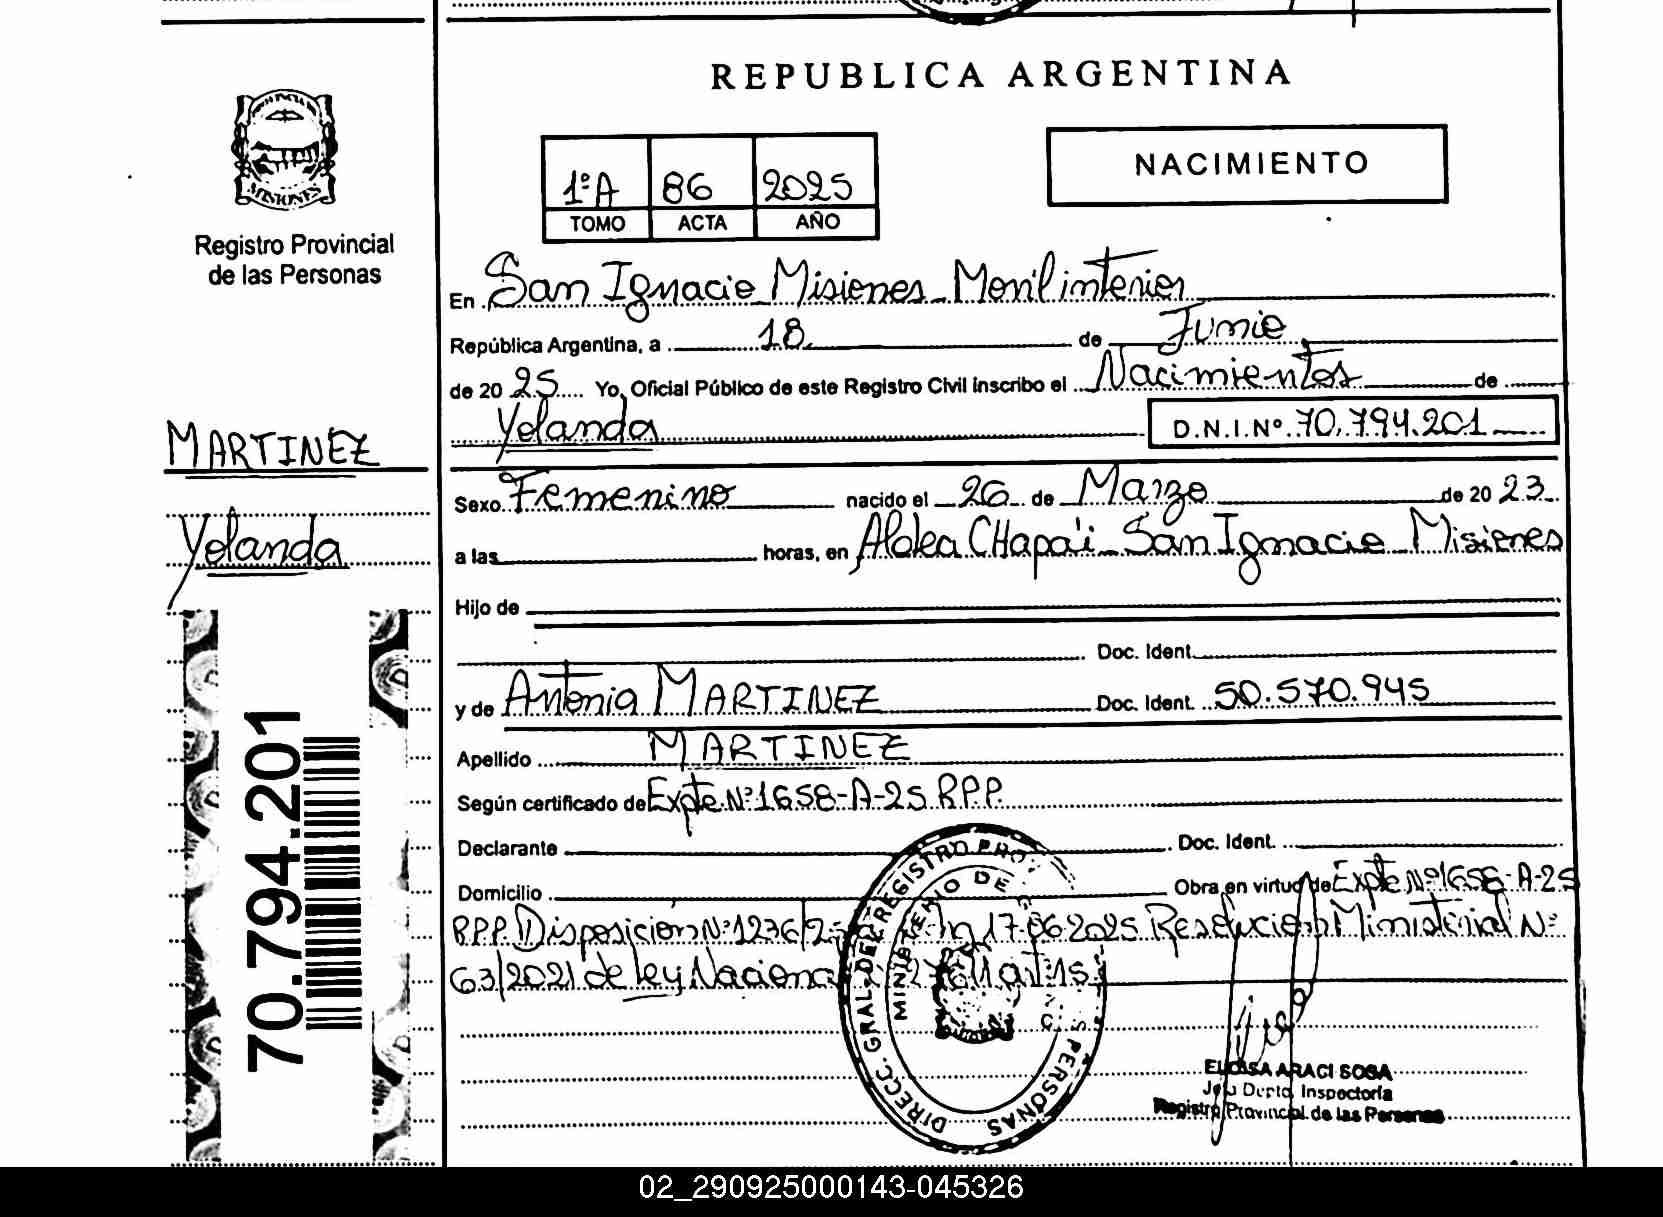 REPUBLICA ARGENTINA
MISIONES
Registro Provincial
de las Personas
1ºA 86 2025
TOMO ACTA AÑO
NACIMIENTO
En San Ignacio Misiones Movil interior
República Argentina, a 18 de Junio
de 20 25 Yo, Oficial Público de este Registro Civil inscribo el Nacimientos de
Yolanda D.N.I.Nº 70.794.201
MARTINEZ
Yolanda
Sexo Femenino nacido el 26 de Marzo de 20 23
a las horas, en Aldea CHapa'i San Ignacio Misiones
Hijo de
Doc. Ident.
y de Antonia MARTINEZ Doc. Ident. 50.570.945
Apellido MARTINEZ
Según certificado de Expte Nº 1658-A-25 R.P.P.
Declarante Doc. Ident.
Domicilio Obra en virtud de Expte Nº 1658-A-25
RPP. Disposición Nº 1236/2 17.06.2025 Resolución Ministerial Nº
63/2021 de ley Nacional
70.794.201
DIRECC. GRAL. DEL REGISTRO PERSONAS
MINISTERIO DE
ELOISA ARACI SOSA
Jefa Dpto. Inspectoría
Registro Provincial de las Personas
02_290925000143-045326